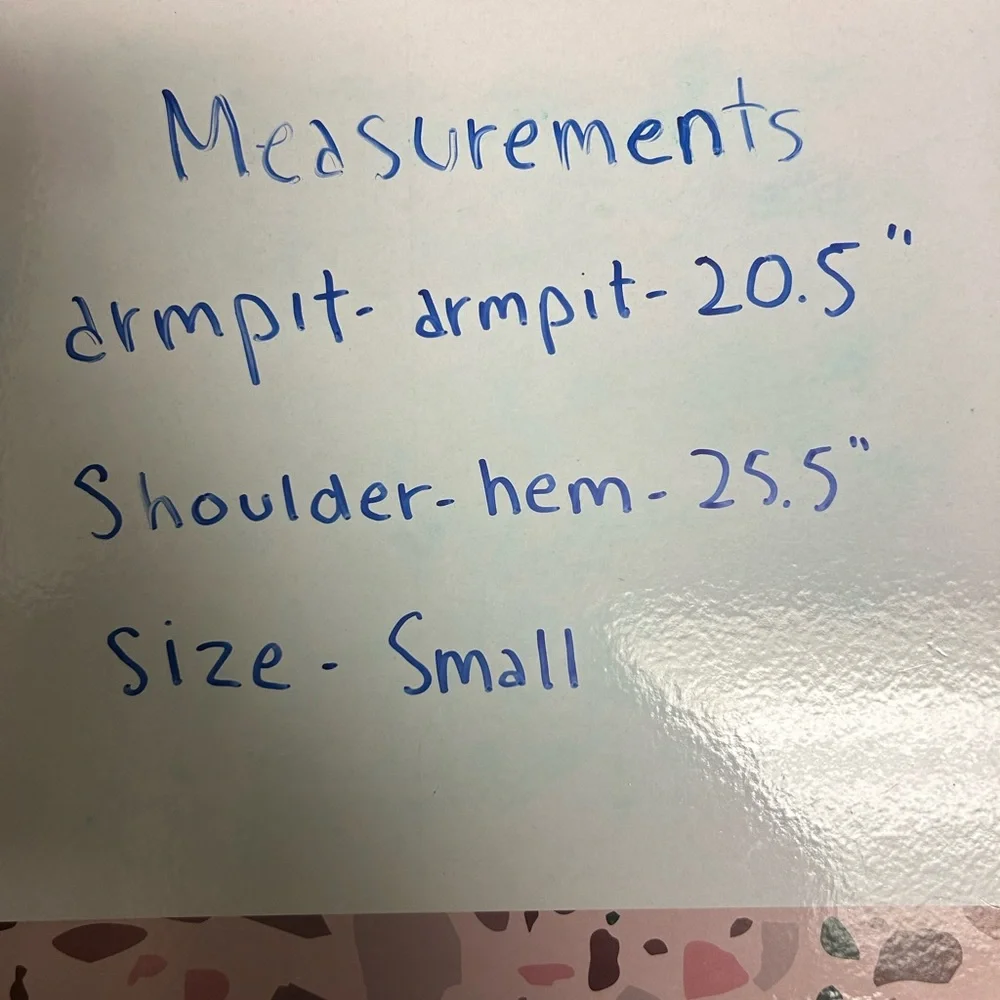 Measurements
armpit- armpit- 20.5"
Shoulder- hem- 25.5"
Size - Small